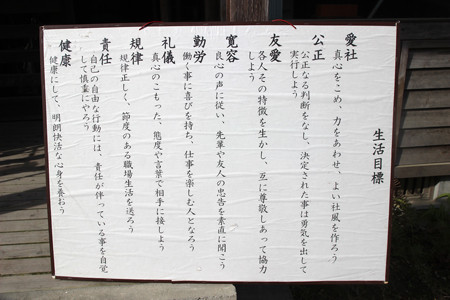 生活目標
愛社
真心をこめ、力をあわせ、よい社風を作ろう
公正
公正なる判断をなし、決定された事は勇気を出して
実行しよう
友愛
各人その特徴を生かし、互に尊敬しあって協力
しよう
寛容
良心の声に従い、先輩や友人の忠告を素直に聞こう
勤労
働く事に喜びを持ち、仕事を楽しむ人となろう
礼儀
真心のこもった、態度や言葉で相手に接しよう
規律
規律正しく、節度のある職場生活を送ろう
責任
自己の自由な行動には、責任が伴っている事を自覚
して慎重にやろう
健康
健康にして、明朗快活な心身を養おう